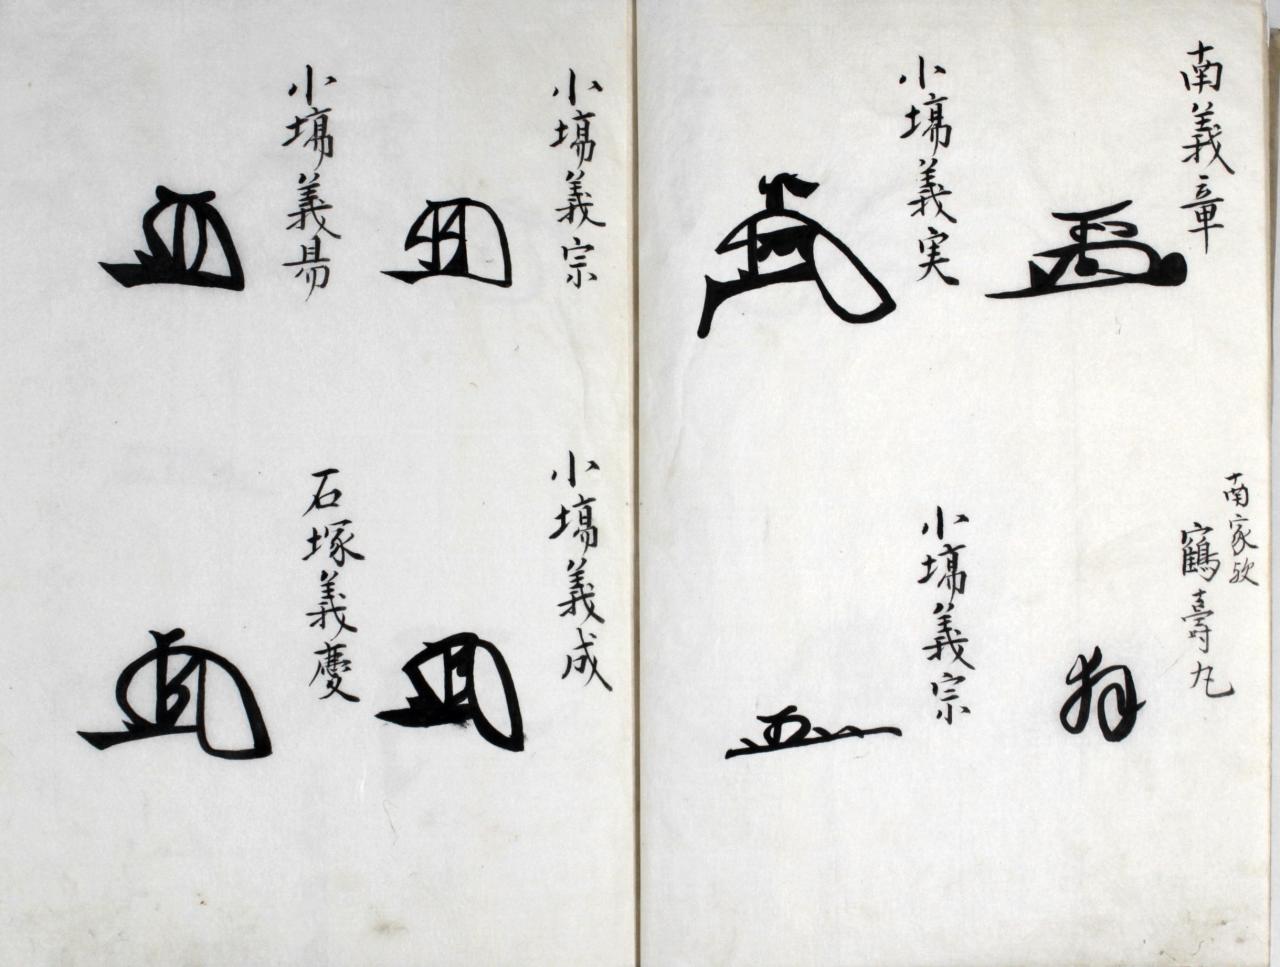 南義章
南家欤
鶴壽丸
小塲義実
小塲義宗
小塲義宗
小塲義成
小塲義易
石塚義慶